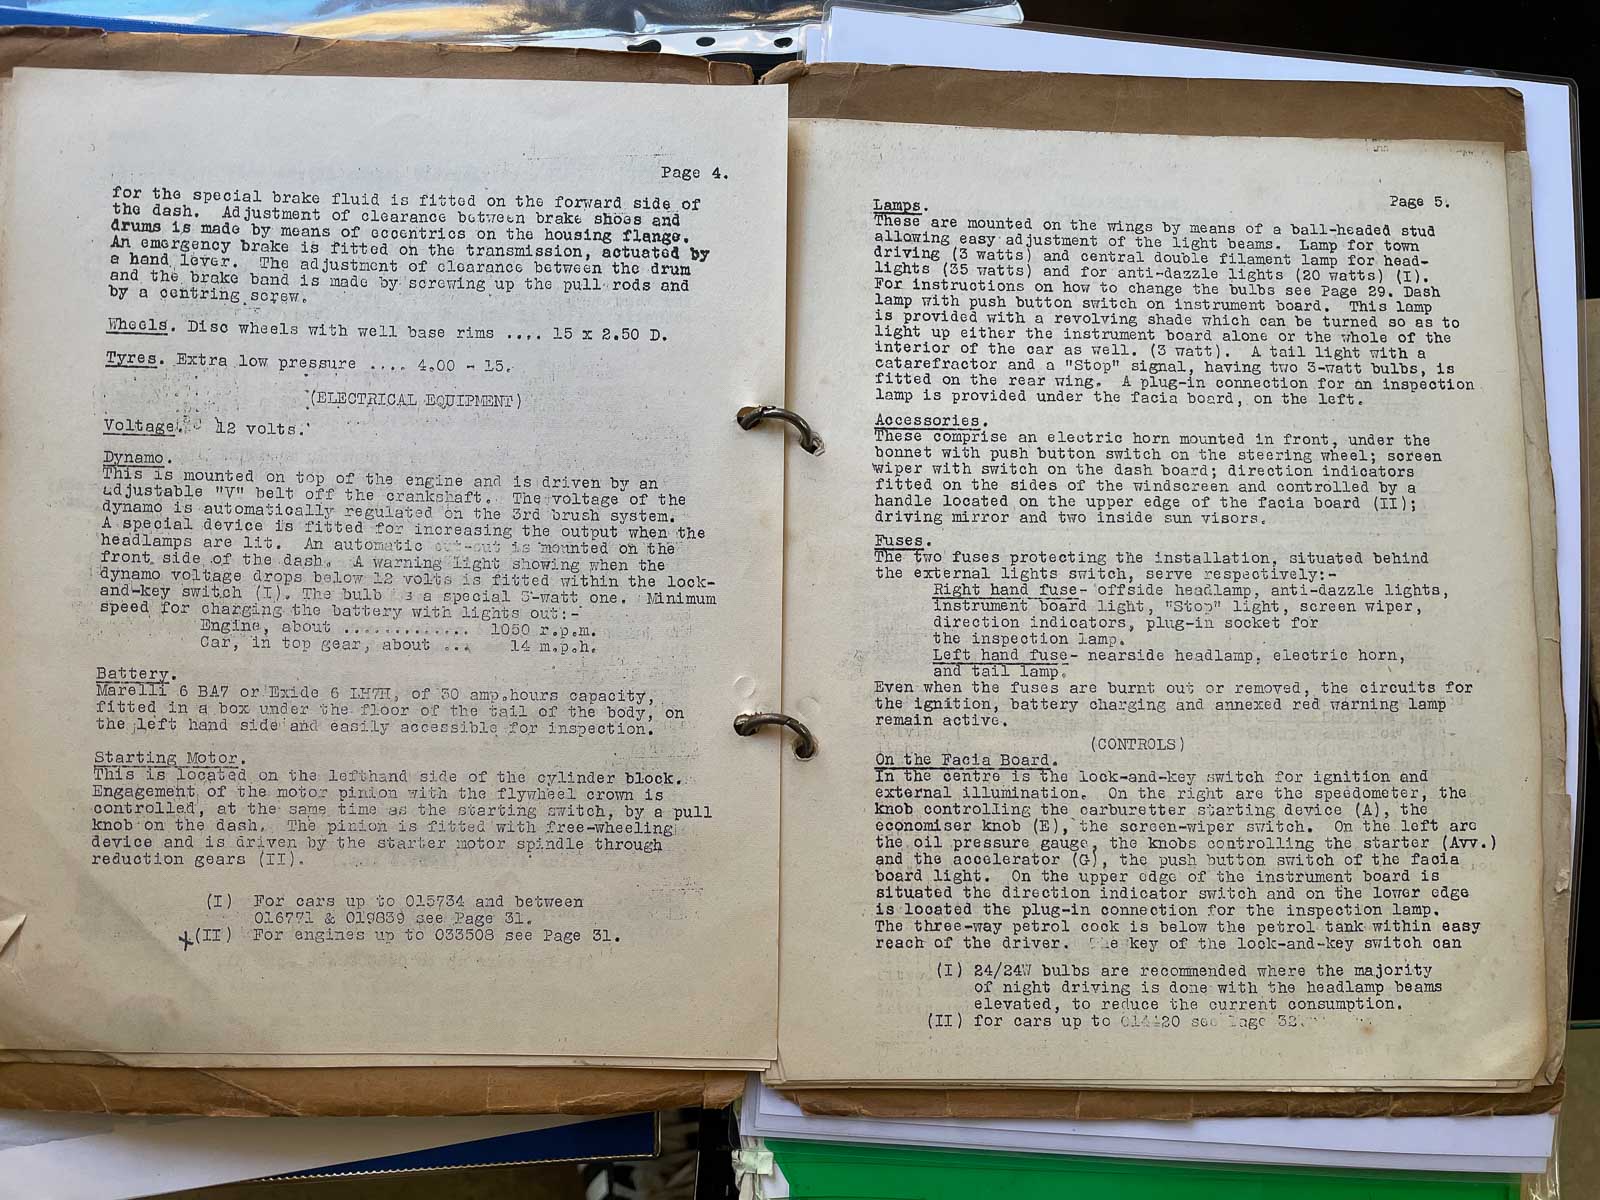 Page 4.
for the special brake fluid is fitted on the forward side of
the dash. Adjustment of clearance between brake shoes and
drums is made by means of eccentrics on the housing flange.
An emergency brake is fitted on the transmission, actuated by
a hand lever. The adjustment of clearance between the drum
and the brake band is made by screwing up the pull rods and
by a centring screw.
Wheels. Disc wheels with well base rims .... 15 x 2.50 D.
Tyres. Extra low pressure .... 4.00 - 15.
(ELECTRICAL EQUIPMENT)
Voltage. 12 volts.
Dynamo.
This is mounted on top of the engine and is driven by an
adjustable "V" belt off the crankshaft. The voltage of the
dynamo is automatically regulated on the 3rd brush system.
A special device is fitted for increasing the output when the
headlamps are lit. An automatic cut-out is mounted on the
front side of the dash. A warning light showing when the
dynamo voltage drops below 12 volts is fitted within the lock-
and-key switch (I). The bulb is a special 3-watt one. Minimum
speed for charging the battery with lights out:-
Engine, about ............. 1050 r.p.m.
Car, in top gear, about ... 14 m.p.h.
Battery.
Marelli 6 BA7 or Exide 6 LH7H, of 30 amp.hours capacity,
fitted in a box under the floor of the tail of the body, on
the left hand side and easily accessible for inspection.
Starting Motor.
This is located on the lefthand side of the cylinder block.
Engagement of the motor pinion with the flywheel crown is
controlled, at the same time as the starting switch, by a pull
knob on the dash. The pinion is fitted with free-wheeling
device and is driven by the starter motor spindle through
reduction gears (II).
(I) For cars up to 015734 and between
016771 & 019839 see Page 31.
x(II) For engines up to 033508 see Page 31.
Page 5.
Lamps.
These are mounted on the wings by means of a ball-headed stud
allowing easy adjustment of the light beams. Lamp for town
driving (3 watts) and central double filament lamp for head-
lights (35 watts) and for anti-dazzle lights (20 watts) (I).
For instructions on how to change the bulbs see Page 29. Dash
lamp with push button switch on instrument board. This lamp
is provided with a revolving shade which can be turned so as to
light up either the instrument board alone or the whole of the
interior of the car as well. (3 watt). A tail light with a
catarefractor and a "Stop" signal, having two 3-watt bulbs, is
fitted on the rear wing. A plug-in connection for an inspection
lamp is provided under the facia board, on the left.
Accessories.
These comprise an electric horn mounted in front, under the
bonnet with push button switch on the steering wheel; screen
wiper with switch on the dash board; direction indicators
fitted on the sides of the windscreen and controlled by a
handle located on the upper edge of the facia board (II);
driving mirror and two inside sun visors.
Fuses.
The two fuses protecting the installation, situated behind
the external lights switch, serve respectively:-
Right hand fuse- offside headlamp, anti-dazzle lights,
instrument board light, "Stop" light, screen wiper,
direction indicators, plug-in socket for
the inspection lamp.
Left hand fuse- nearside headlamp, electric horn,
and tail lamp.
Even when the fuses are burnt out or removed, the circuits for
the ignition, battery charging and annexed red warning lamp
remain active.
(CONTROLS)
On the Facia Board.
In the centre is the lock-and-key switch for ignition and
external illumination. On the right are the speedometer, the
knob controlling the carburetter starting device (A), the
economiser knob (E), the screen-wiper switch. On the left are
the oil pressure gauge, the knobs controlling the starter (Avv.)
and the accelerator (G), the push button switch of the facia
board light. On the upper edge of the instrument board is
situated the direction indicator switch and on the lower edge
is located the plug-in connection for the inspection lamp.
The three-way petrol cock is below the petrol tank within easy
reach of the driver. The key of the lock-and-key switch can
(I) 24/24W bulbs are recommended where the majority
of night driving is done with the headlamp beams
elevated, to reduce the current consumption.
(II) for cars up to 014420 see Page 32.